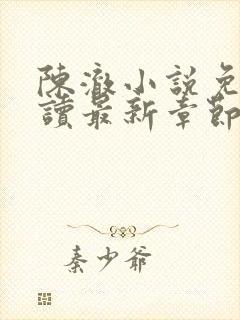 陳澈小說免
讀最新章節
秦少爺